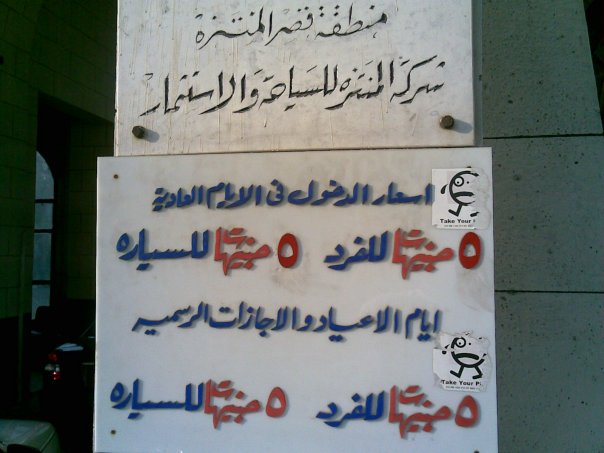 منطقة قصر المنتزة
شركة المنتزه للسياحة والاستثمار
اسعار الدخول فى الايام العادية
٥ جنيهات للفرد ٥ جنيهات للسياره
ايام الاعياد والاجازات الرسميه
٥ جنيهات للفرد ٥ جنيهات للسياره
Take Your
Take Your P